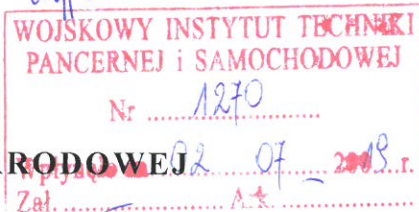 WOJSKOWY INSTYTUT TECHNIKI
PANCERNEJ i SAMOCHODOWEJ
Nr ....1270....
RODOWEJ
Wpłynęło 02 07 2019 r.
Zał. ..... – .....